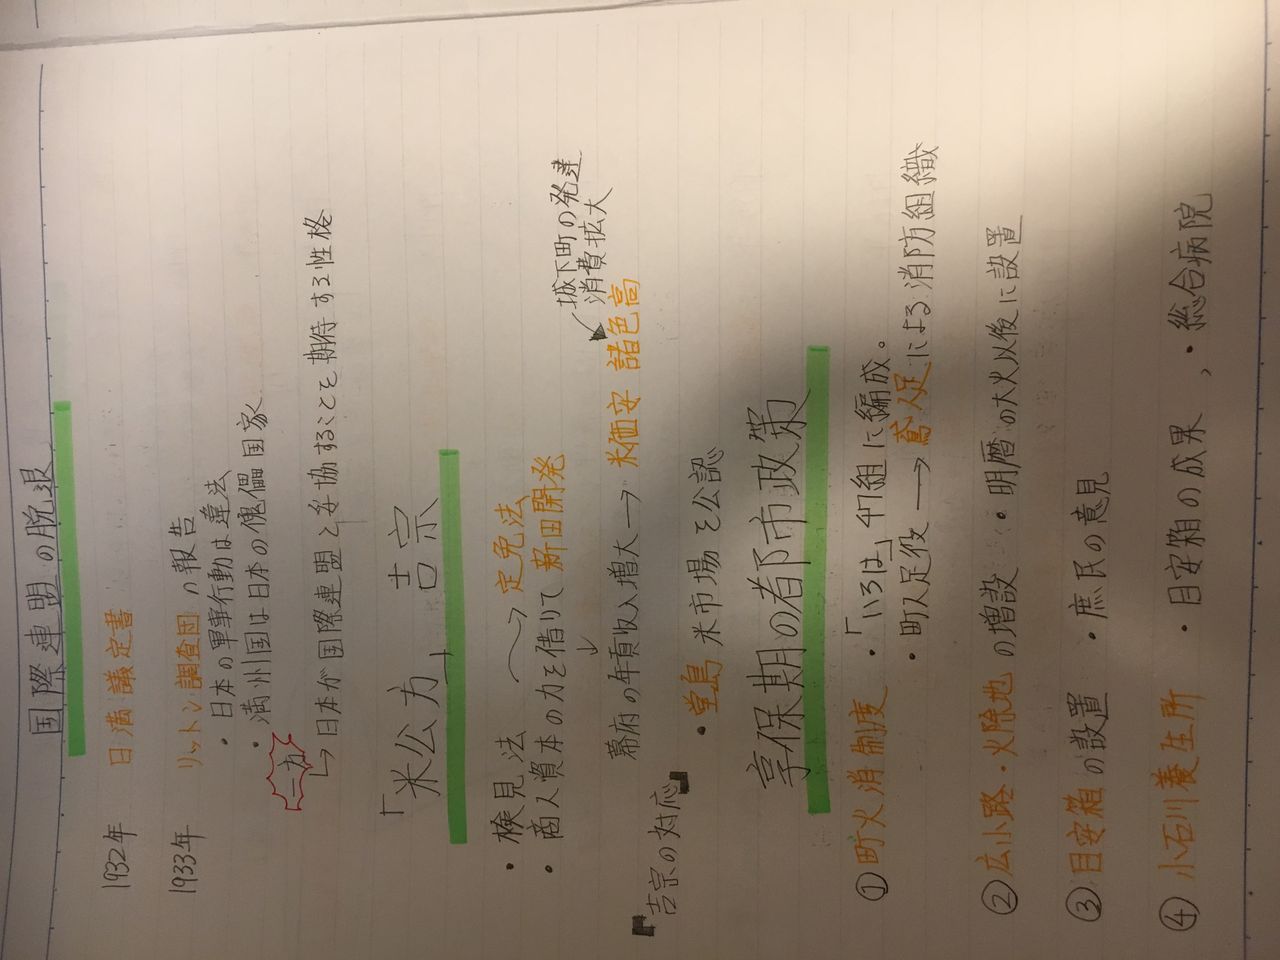 国際連盟の脱退
1932年 日満議定書
1933年 リットン調査団の報告
・日本の軍事行動は違法
・満州国は日本の傀儡国家
一方
↳日本が国際連盟と妥協することを期待する性格
「米公方」吉宗
・検見法 → 定免法
・商人資本の力を借りて新田開発
↓
城下町の発達
消費拡大
幕府の年貢収入増大→米価安 諸色高
『吉宗の対応』
・堂島米市場を公認
享保期の都市政策
①町火消制度・「いろは」47組に編成。
・町人足役→鳶人足による消防組織
②広小路・火除地の増設・明暦の大火以後に設置
③目安箱の設置・庶民の意見
④小石川養生所・目安箱の成果、・総合病院